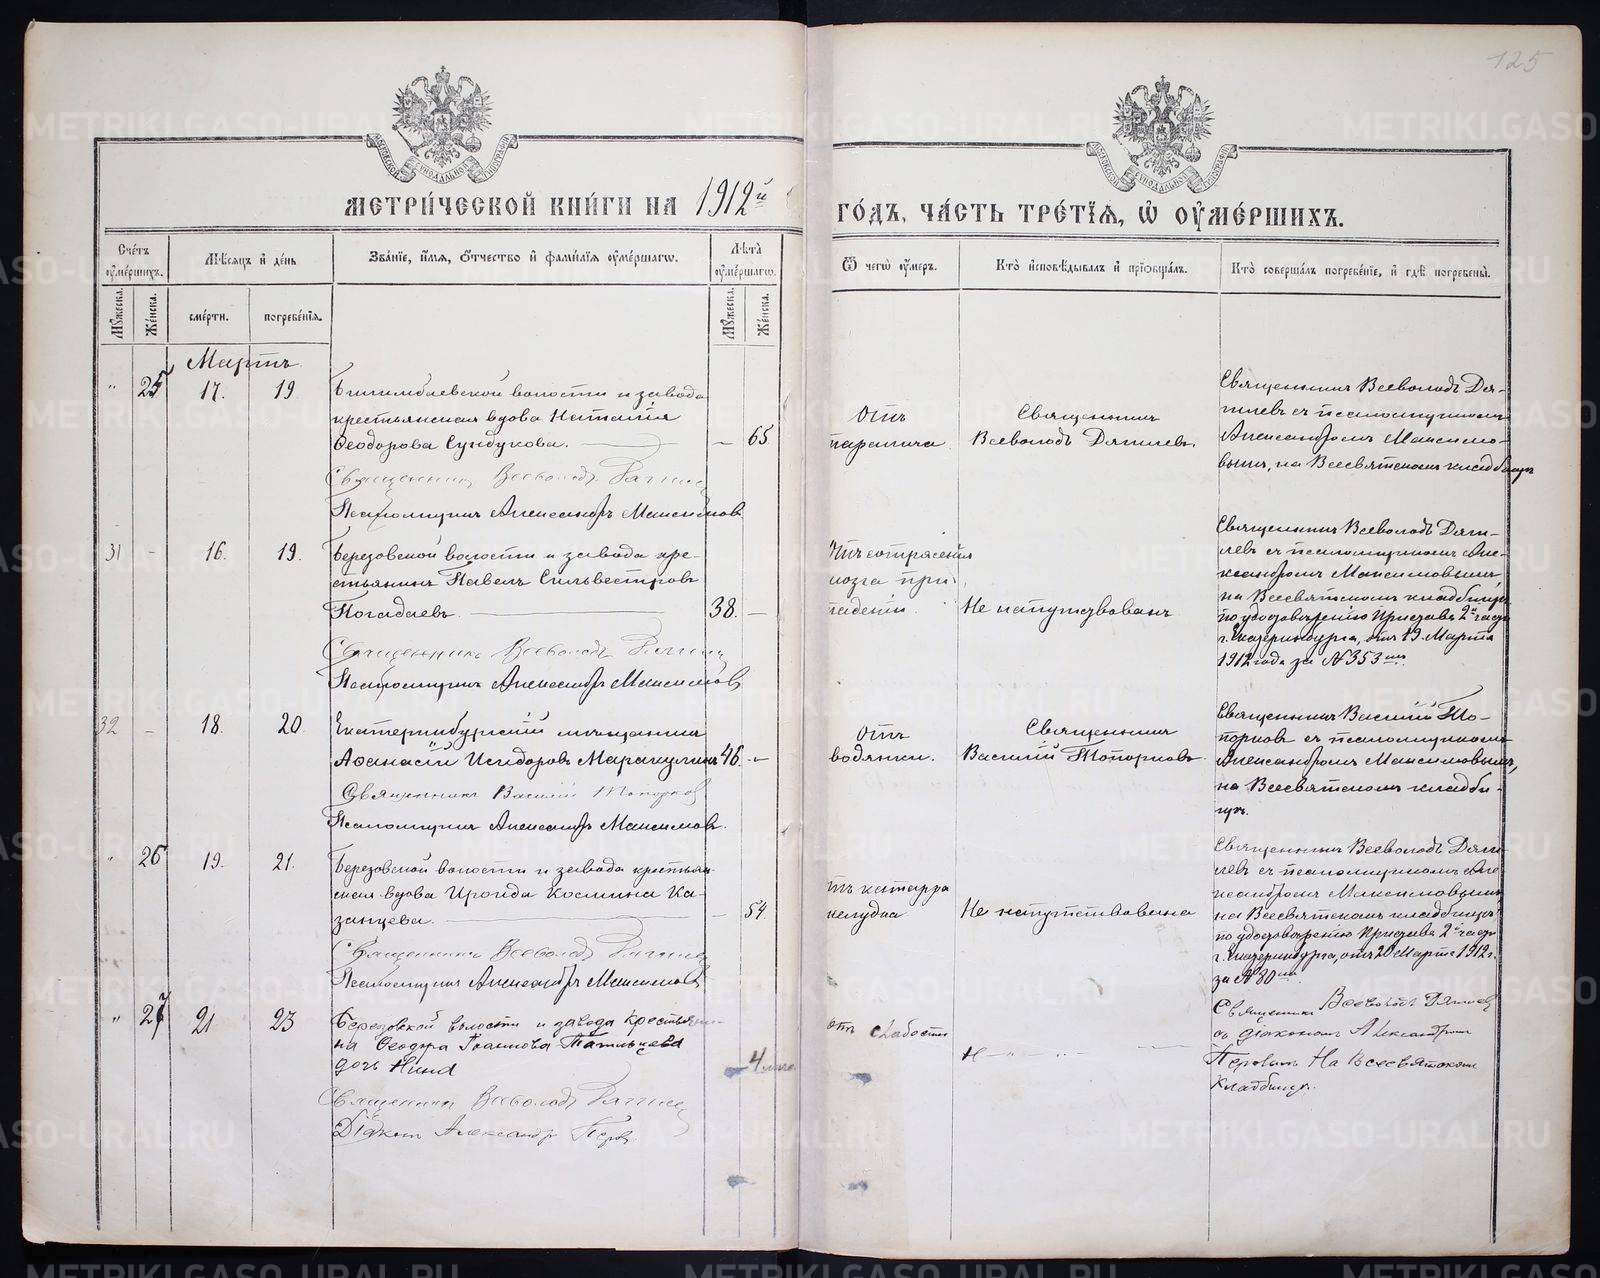 125
МЕТРИ́ЧЕСКОЙ КНИ́ГИ НА 1912й
ГО́ДЪ, ЧА́СТЬ ТРЕ́ТІѦ, Ѡ҆ ОУ҆МЕ́РШИХЪ.
Сче́тъ оу҆ме́ршихъ.
Мѣ́сяцъ и҆ де́нь
Зва́ніе, и҆́мѧ, ѻ҆́тчество и҆ фами́лїѧ оу҆ме́ршагѡ.
Лѣ́та оу҆ме́ршагѡ.
Ѿ чегѡ̀ оу҆́меръ.
Кто̀ и҆сповѣ́дывалъ и҆ прїѡбща́лъ.
Кто̀ соверша́лъ погребе́ніе, и҆ гдѣ̀ погребены̀.
Мꙋ́жеска.
Же́нска.
сме́рти.
погребе́нїѧ.
Мꙋ́жеска.
Же́нска.
Мартъ
" 25 17. 19
Билимбаевской волости и завода
крестьянская вдова Наталія
Ѳеодорова Сундукова. — 65
Священникъ Всеволодъ Дягилев
Псаломщикъ Александръ Максимовъ
Отъ
паралича
Священникъ
Всеволодъ Дягилевъ.
Священникъ Всеволодъ Дя-
гилевъ съ псаломщикомъ
Александромъ Максимо-
вымъ, на Всесвятскомъ кладбищѣ
31 - 16. 19.
Березовской волости и завода кре-
стьянинъ Павелъ Сильвестровъ
Погадаевъ 38. —
Священникъ Всеволодъ Дягилев
Псаломщикъ Александръ Максимовъ
Отъ сотрясенія
мозга при
паденіи.
Не напутствованъ
Священникъ Всеволодъ Дяги-
левъ съ псаломщикомъ Але-
ксандромъ Максимовымъ,
на Всесвятскомъ кладбищѣ
по удостовѣренію Пристава 2й части
г. Екатеринбурга, отъ 19 Марта
1912 года за №353мъ.
32 - 18. 20.
Екатеринбургскій мѣщанинъ
Аѳанасій Исидоровъ Маракулинъ 46. —
Священникъ Василій Топорков
Псаломщикъ Александръ Максимовъ.
отъ
водянки.
Священникъ
Василій Топорковъ
Священникъ Василій То-
порковъ съ псаломщикомъ
Александромъ Максимовымъ,
на Всесвятскомъ кладби-
щѣ.
" 26 19. 21.
Березовской волости и завода крестьян-
ская вдова Ираида Космина Ка-
занцева. — 54
Священникъ Всеволодъ Дягилев
Псаломщикъ Александръ Максимовъ
тъ катарра
желудка
Не напутствована
Священникъ Всеволодъ Дяги-
левъ съ псаломщикомъ Але-
ксандромъ Максимовымъ,
на Всесвятскомъ кладбищѣ
по удостовѣренію Пристава 2й части
г. Екатеринбурга, отъ 20 Марта 1912 г.
за №80мъ
" 27 21 23
Березовской волости и завода крестьяни-
на Ѳеодора Іоаннова
дочь Нина 4
Священникъ Всеволодъ Дягилев
Діаконъ Александръ Перов
отъ слабости
Н — " —
Священникъ Всеволодъ Дягилев
съ діакономъ Александромъ
Перовымъ На Всесвятскомъ
Кладбищѣ.
METRIKI.GASO-URAL.RU